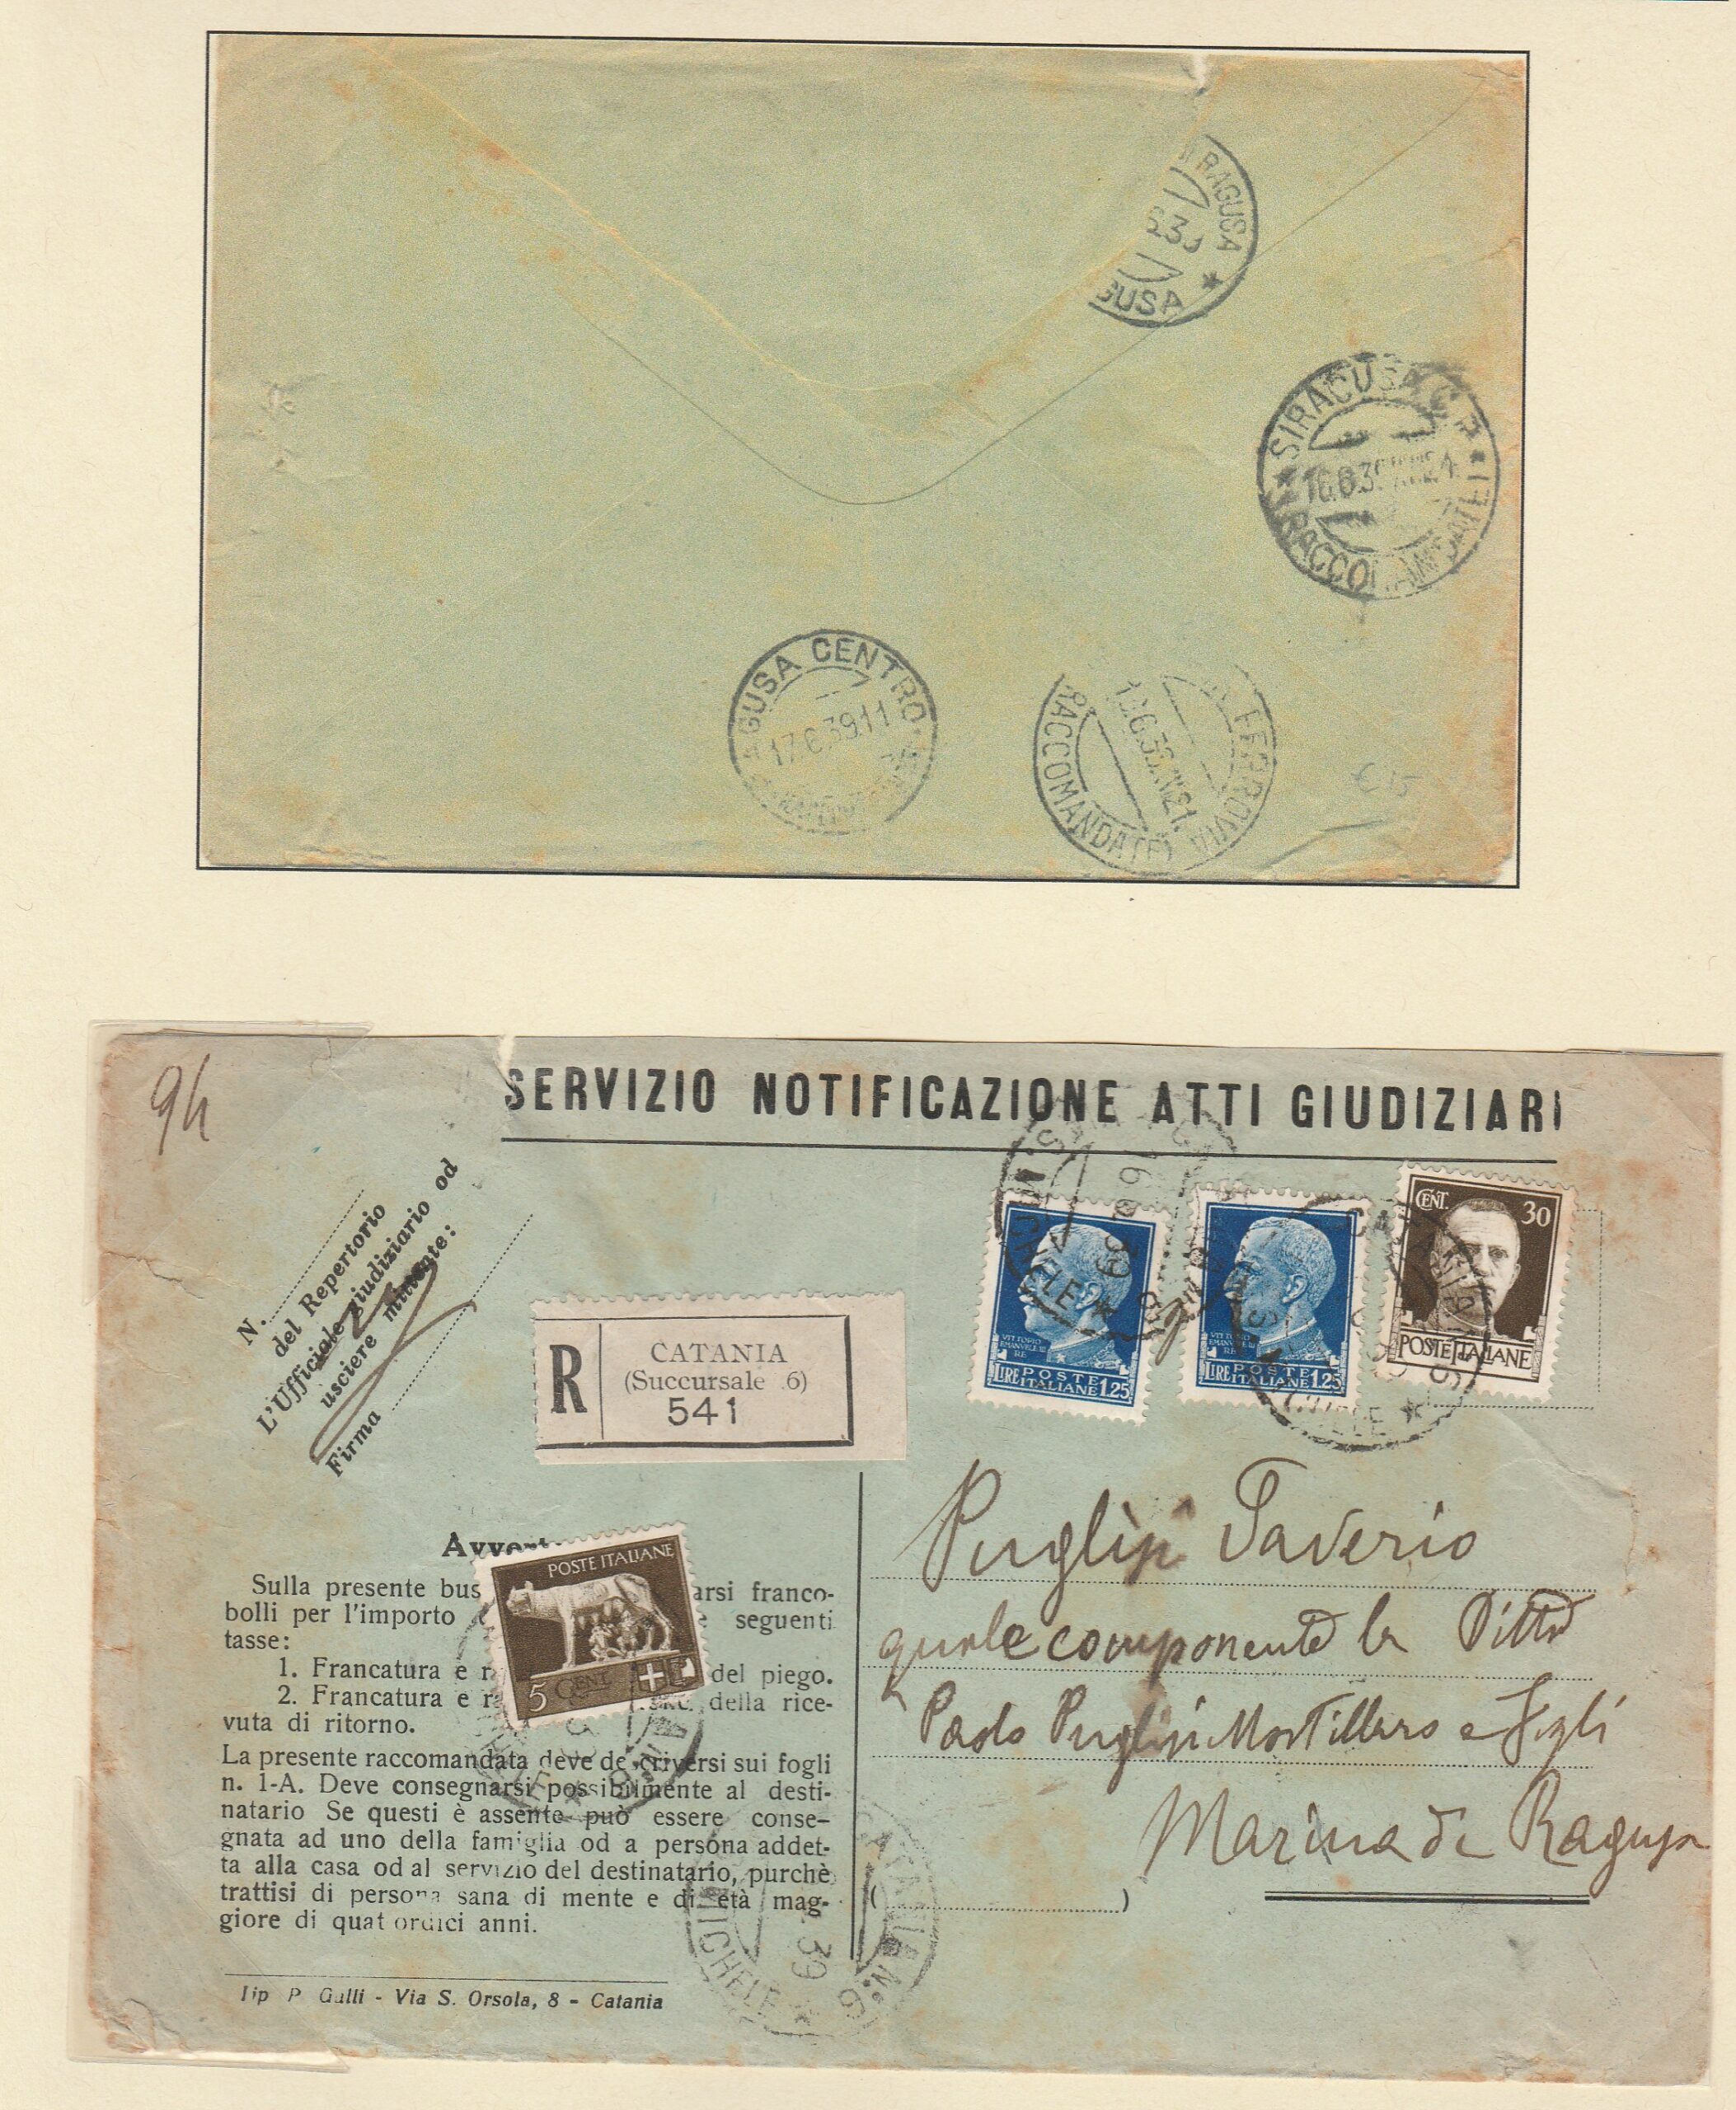 RAGUSA
GUSA *
SIRACUSA C.P.
RACCOMANDATE
AGUSA CENTRO
17.6.39.11
FERROVIA
RACCOMANDATE
€ 15
SERVIZIO NOTIFICAZIONE ATTI GIUDIZIARI
N.
del Repertorio
L'Ufficiale giudiziario od
usciere mittente:
Firma
R
CATANIA
(Succursale 6)
541
VITTORIO
EMANVELE III
RE
LIRE POSTE ITALIANE 1.25
VITTORIO
EMANVELE III
RE
LIRE POSTE ITALIANE 1.25
CENT. 30
POSTE ITALIANE
CATANIA
MICHELE *
POSTE ITALIANE
5 CENT.
Avvert
Sulla presente bus arsi franco-
bolli per l'importo seguenti
tasse:
1. Francatura e r del piego.
2. Francatura e ra della rice-
vuta di ritorno.
La presente raccomandata deve descriversi sui fogli
n. 1-A. Deve consegnarsi possibilmente al desti-
natario Se questi è assente può essere conse-
gnata ad uno della famiglia od a persona addet-
ta alla casa od al servizio del destinatario, purchè
trattisi di persona sana di mente e di età mag-
giore di quattordici anni.
Tip P. Galli - Via S. Orsola, 8 - Catania
CATANIA N. 6
MICHELE *
39
Puglisi Saverio
quale componente la Ditta
Paolo Puglisi Mortillaro e figli
Marina di Ragusa
( )